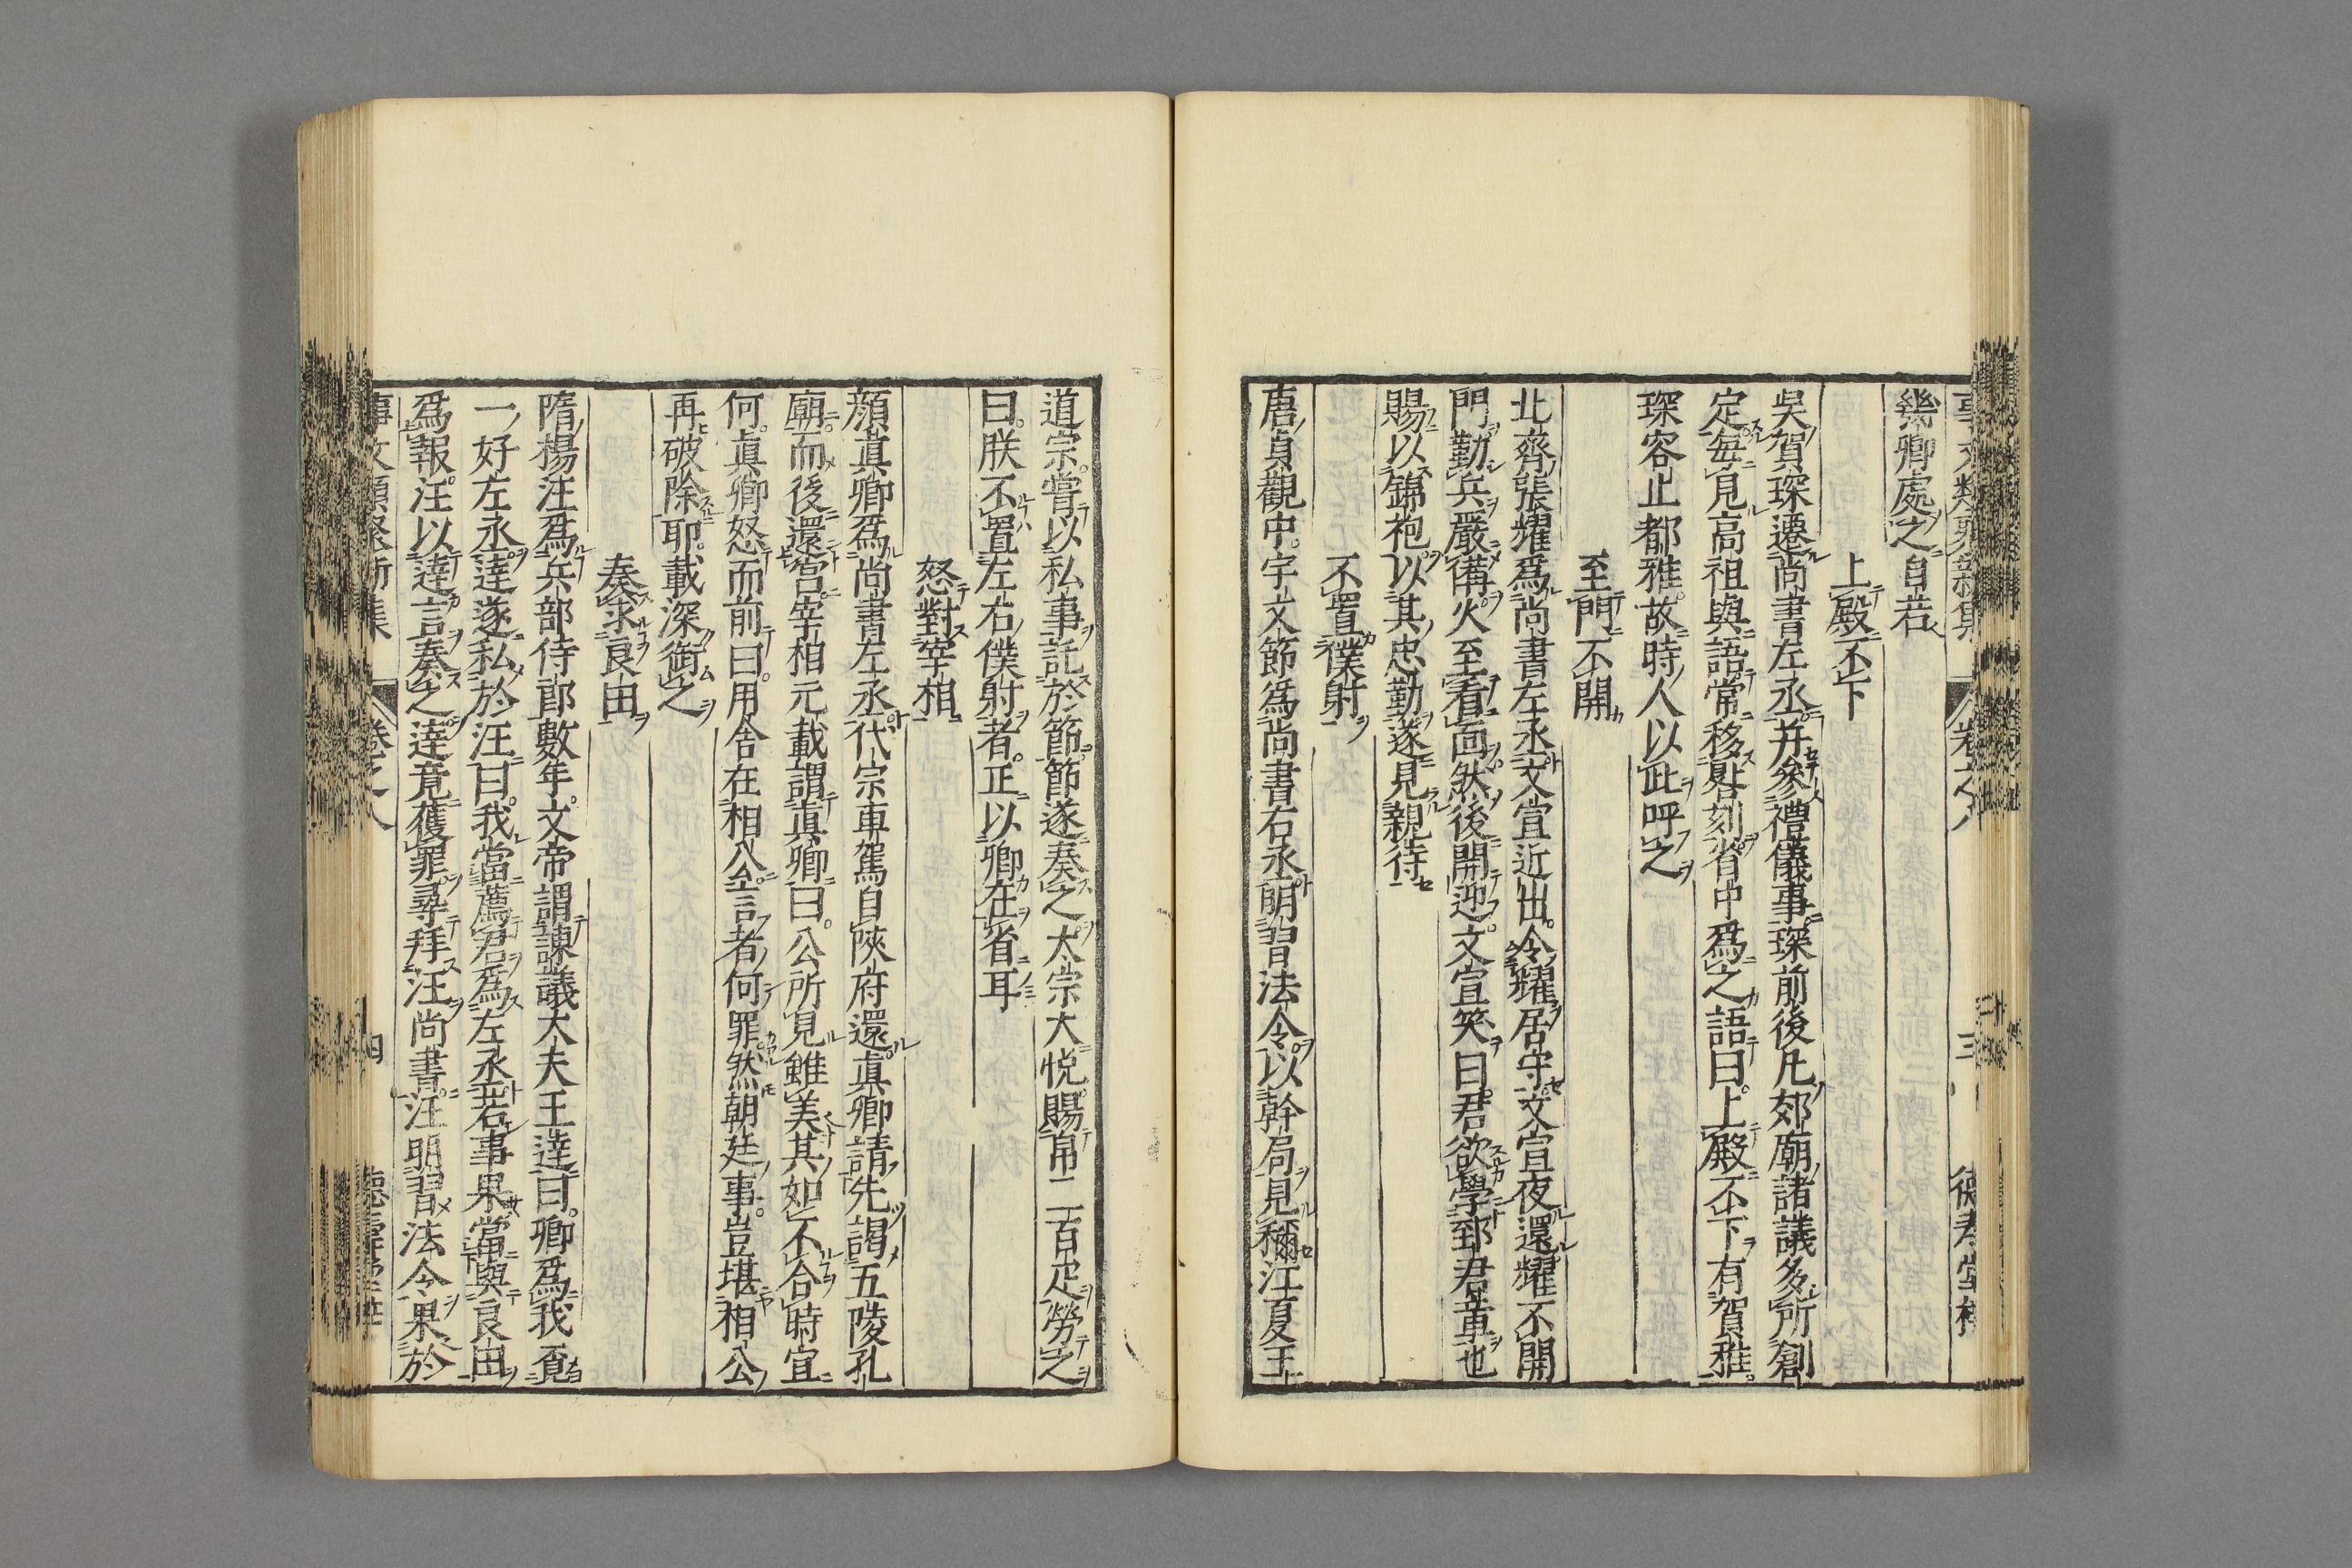 幾卿處之自若
上殿不下
吳賀琛遷尚書左丞并參禮儀事琛前後凡郊廟諸議多所創
定每見高祖與語常移晷刻省中爲之語曰上殿不下有賀雅
琛容止都雅故時人以此呼之
至門不開
北齊張耀爲尚書左丞文宣近出令耀居守文宣夜還耀不開
門勤兵嚴備火至看面然後開迎文宣笑曰君欲學郅君章也
賜以錦袍以其忠勤遂見親待
不置僕射
唐貞觀中宇文節爲尚書右丞明習法令以幹局見稱江夏王
道宗嘗以私事託於節節遂奏之太宗大悅賜帛二百疋勞之
曰朕不置左右僕射者正以卿在省耳
怒對宰相
顏眞卿爲尚書左丞代宗車駕自陝府還眞卿請先謁五陵孔
廟而後還宮宰相元載謂眞卿曰公所見雖美其如不合時宜
何眞卿怒而前曰用舍在相公言者何罪然朝廷事豈堪相公
再破除耶載深銜之
奏求良田
隋楊汪爲兵部侍郎數年文帝謂諫議大夫王達曰卿爲我覓
一好左丞達遂私於汪曰我當薦君爲左丞若事果當與良田
爲報汪以達言奏之達竟獲罪尋拜汪尚書汪明習法令果於
卷之八 四